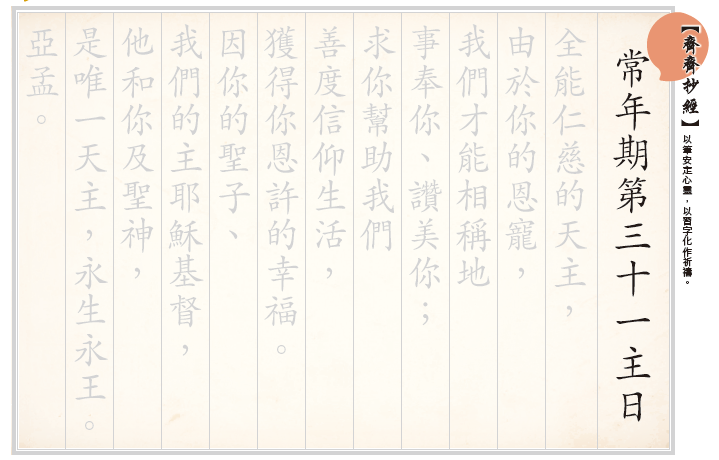 【齊齊抄經】
以筆安定心靈，以習字化作祈禱。
常年期第三十一主日
全能仁慈的天主，
由於你的恩寵，
我們才能相稱地
事奉你、讚美你；
求你幫助我們
善度信仰生活，
獲得你恩許的幸福。
因你的聖子、
我們的主耶穌基督，
他和你及聖神，
是唯一天主，永生永王。
亞孟。